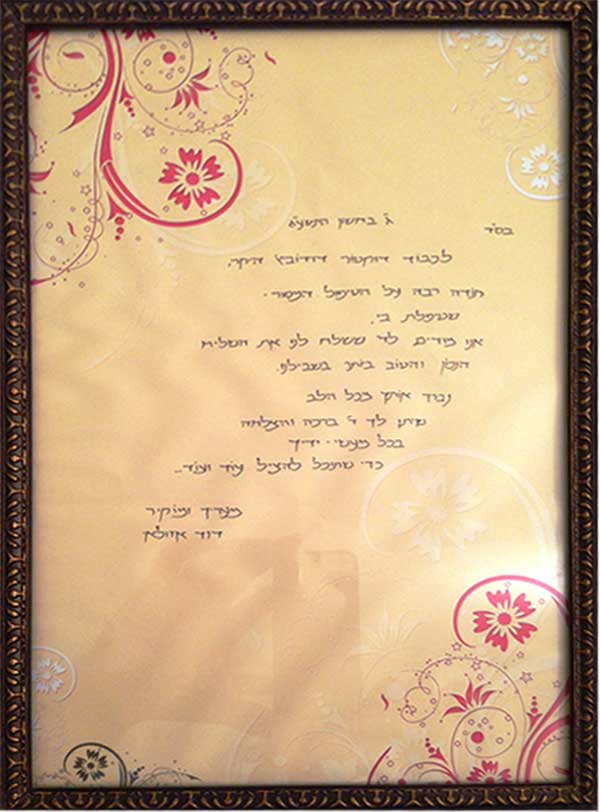 בס״ד
ג׳ בחשון התשע״ג
לכבוד דוקטור דודוביץ היקר,
תודה רבה על הטיפול המסור
שטיפלת בי,
אני מודים לה׳ ששלח לנו את השליח
הנכון והטוב ביותר בשבילנו.
נברך אותך מכל הלב
שיתן לך ד׳ ברכה והצלחה
בכל מעשי ידיך
כדי שתוכל להציל עוד ועוד..
מעריך ומוקיר
דוד אזולאי